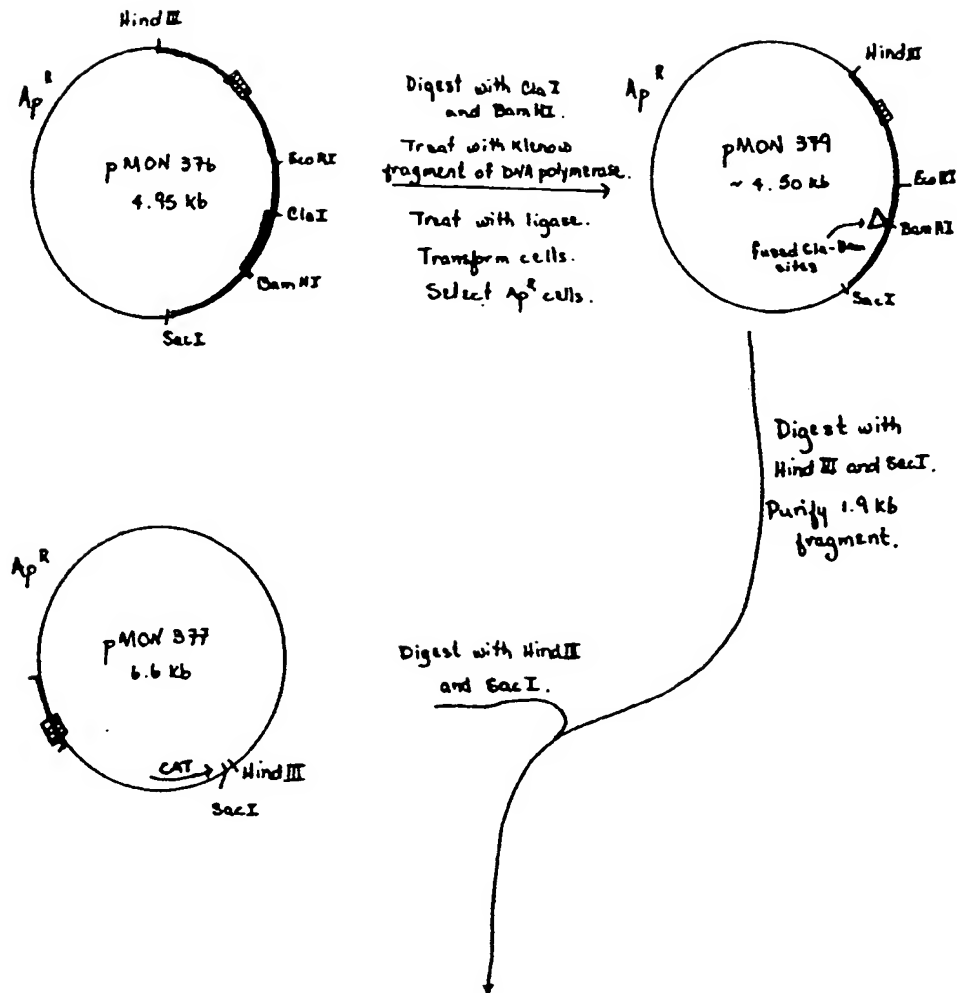 Hind III
Ap R
pMON 376
4.95 kb
EcoRI
ClaI
BamHI
SacI
Digest with ClaI
and BamHI.
Treat with Klenow
fragment of DNA polymerase.
Treat with ligase.
Transform cells.
Select Ap R cells.
Hind III
Ap R
pMON 379
~ 4.50 kb
EcoRI
BamHI
fused Cla-Bam
sites
SacI
Digest with
Hind III and SacI.
Purify 1.9 kb
fragment.
Ap R
pMON 377
6.6 kb
CAT
Hind III
SacI
Digest with Hind III
and SacI.